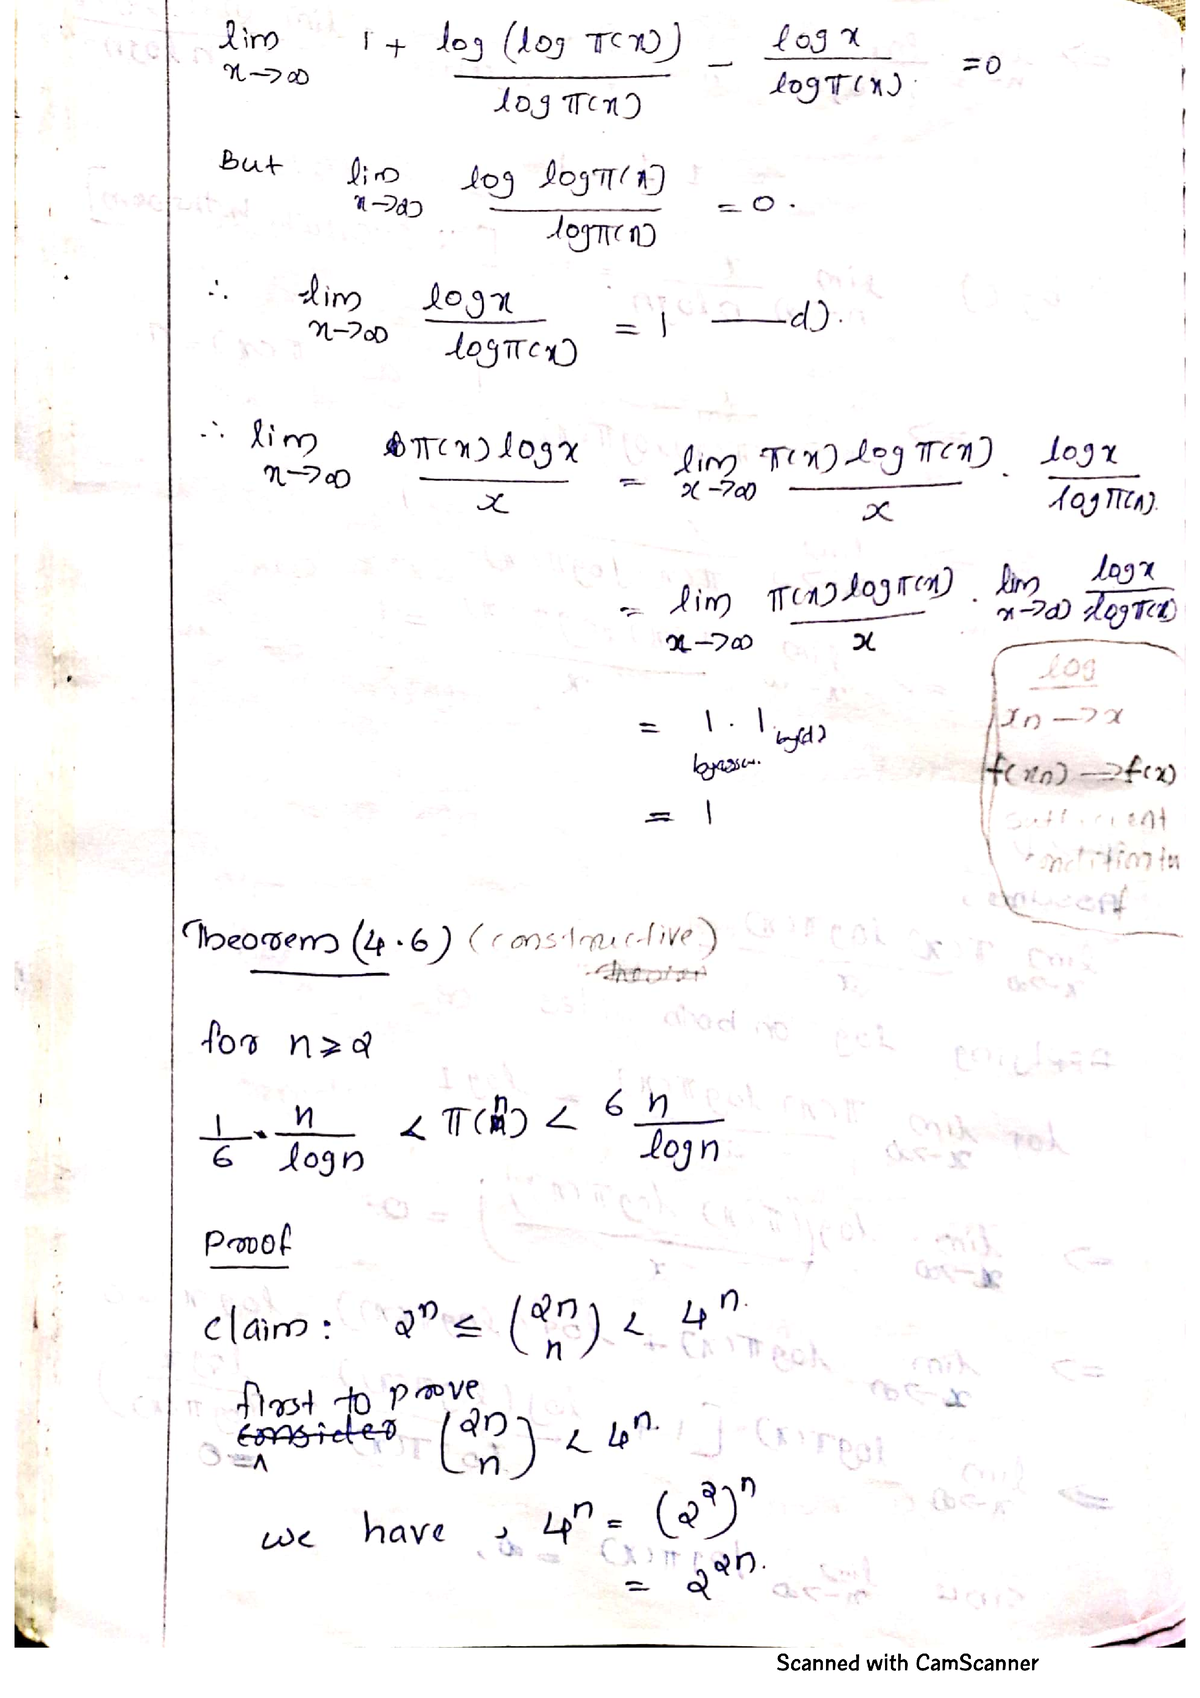 lim x→∞ 1 + log (log π(x)) / log π(x) − log x / log π(x) = 0
But lim x→∞ log log π(x) / log π(x) = 0.
∴ lim x→∞ log x / log π(x) = 1 —— d).
∴ lim x→∞ π(x) log x / x = lim x→∞ π(x) log π(x) / x · log x / log π(x).
= lim x→∞ π(x) log π(x) / x · lim x→∞ log x / log π(x)
log
= 1 · 1 by (d)
xn → x
by assu.
f(xn) → f(x)
= 1
Theorem (4.6) (constructive)
for n ≥ 2
1/6 · n / log n < π(n) < 6 n / log n
Proof
Claim: 2^n ≤ (2n n) < 4^n.
first to prove
consider (2n n) < 4^n.
we have, 4^n = (2^2)^n
= 2^2n.
Scanned with CamScanner